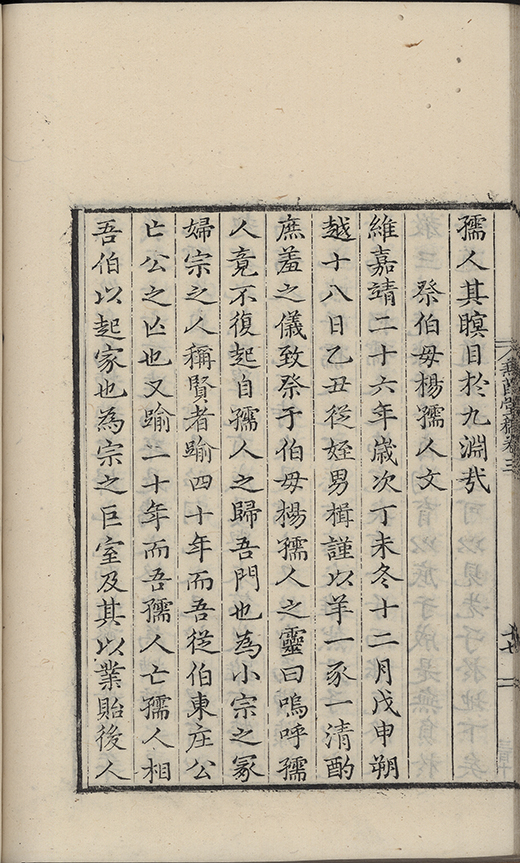 孺人其瞑目於九淵㢤
祭伯母楊孺人文
維嘉靖二十六年歳次丁未冬十二月戊申朔
越十八日乙丑從姪男楫謹以羊一豕一清酌
庶羞之儀致祭于伯母楊孺人之靈曰嗚呼孺
人竟不復起自孺人之歸吾門也為小宗之冡
婦宗之人稱賢者踰四十年而吾從伯東庄公
亡公之亡也又踰二十年而吾孺人亡孺人相
吾伯以起家也為宗之巨室及其以業貽後人
卷三
十七